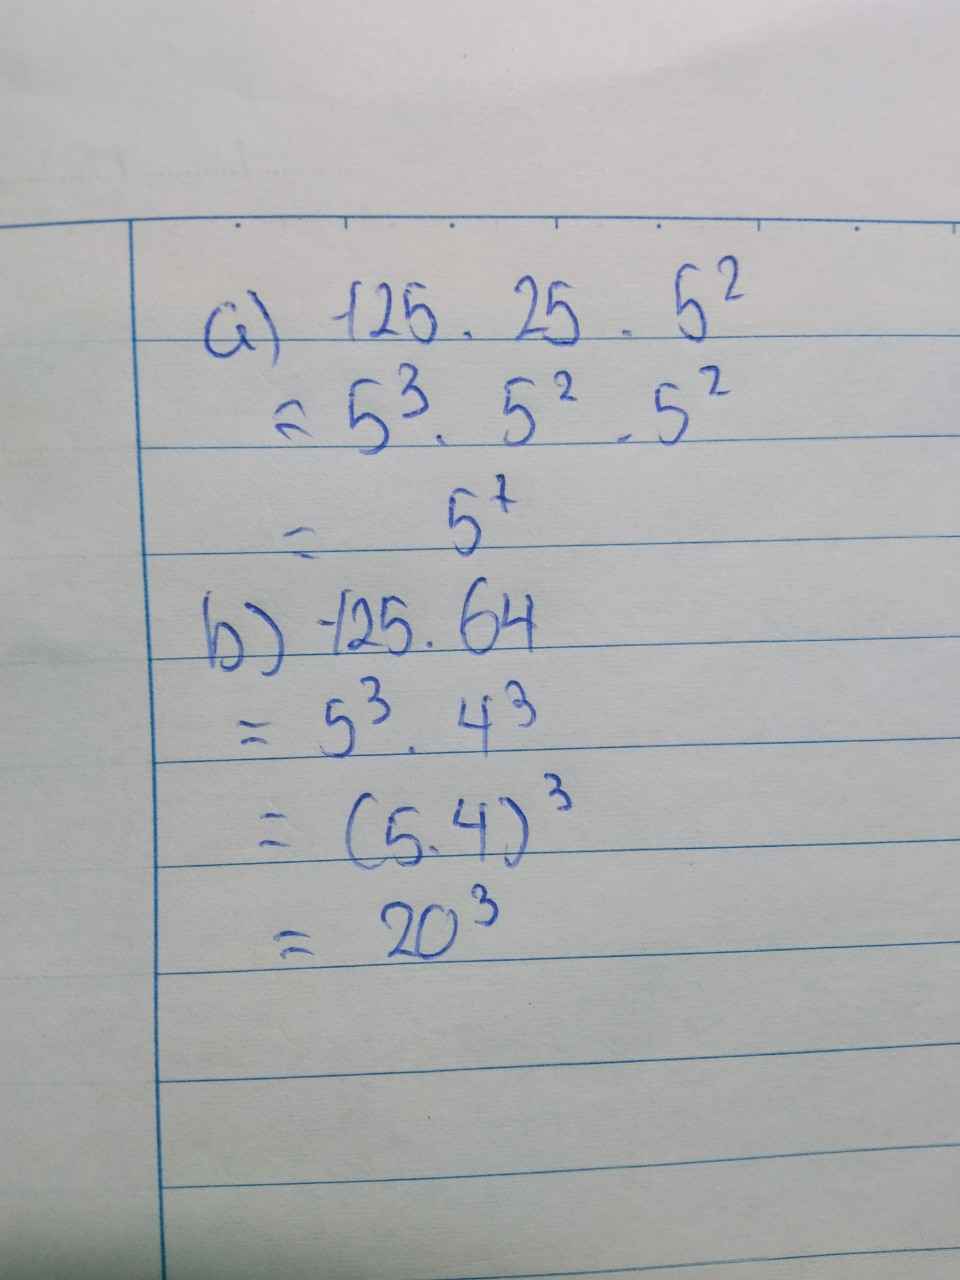 a) 125 . 25 . 5²
= 5³ . 5² . 5²
= 5⁷
b) 125 . 64
= 5³ . 4³
= (5.4)³
= 20³